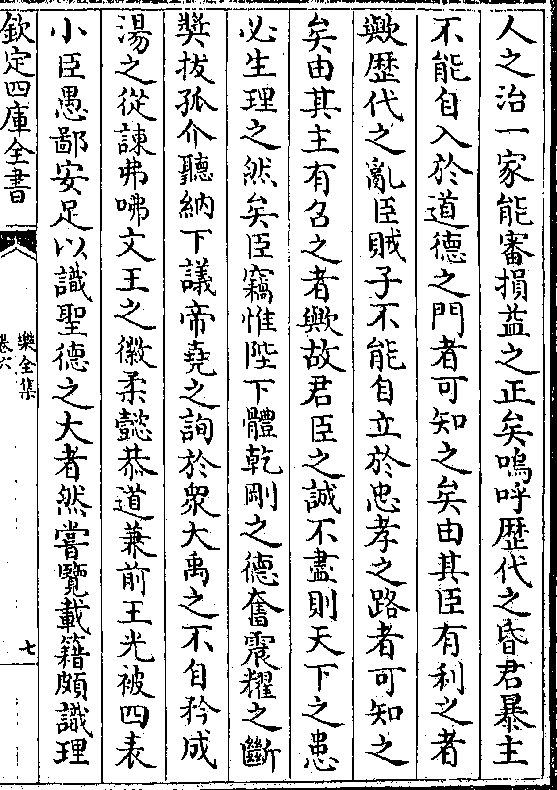 人之治一家能審損益之正矣嗚呼歴代之昏君暴主
不能自入於道德之門者可知之矣由其臣有利之者
歟歴代之亂臣賊子不能自立於忠孝之路者可知之
矣由其主有召之者歟故君臣之誠不盡則天下之患
必生理之然矣臣竊惟陛下體乾剛之德奮震耀之斷
奬拔孤介聽納下議帝堯之詢於衆大禹之不自矜成
湯之從諫弗咈文王之徽柔懿恭道兼前王光被四表
小臣愚鄙安足以識聖德之大者然嘗覽載籍頗識理
欽定四庫全書
樂全集
卷六
七